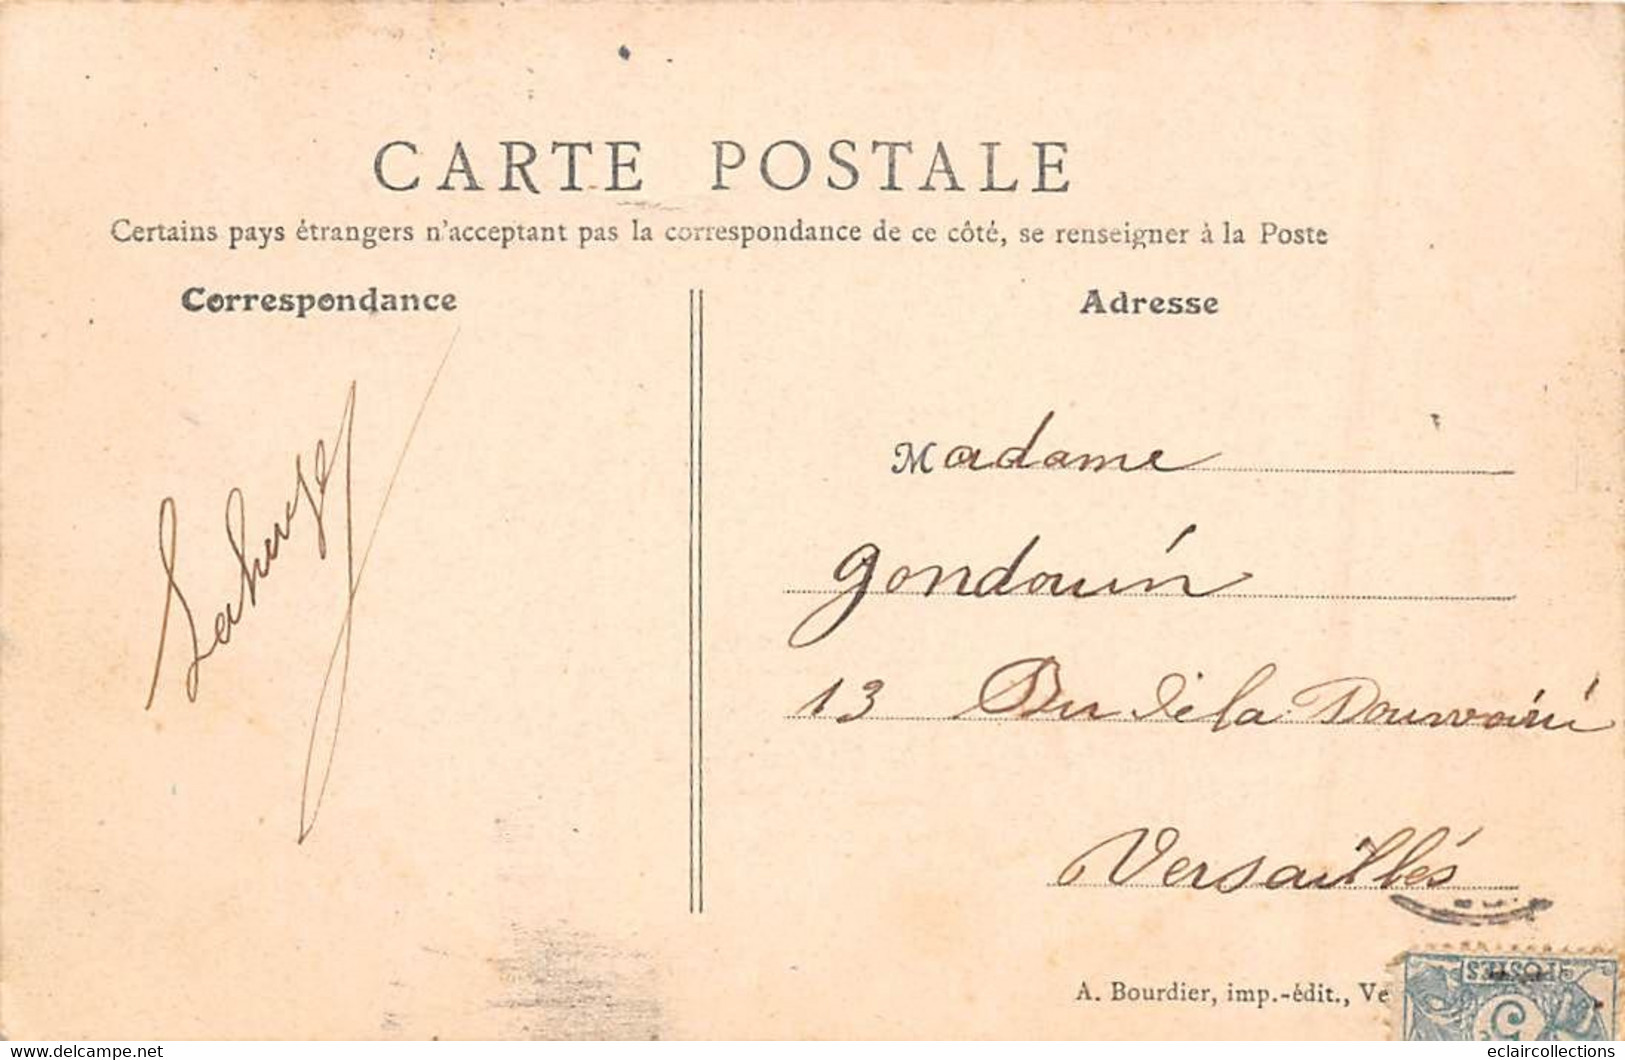 CARTE POSTALE
Certains pays étrangers n'acceptant pas la correspondance de ce côté, se renseigner à la Poste
Correspondance
Adresse
Madame
Gondouin
13 de la
Versailles
A. Bourdier, imp.-édit., Ve
POSTES
5
eclaircollections